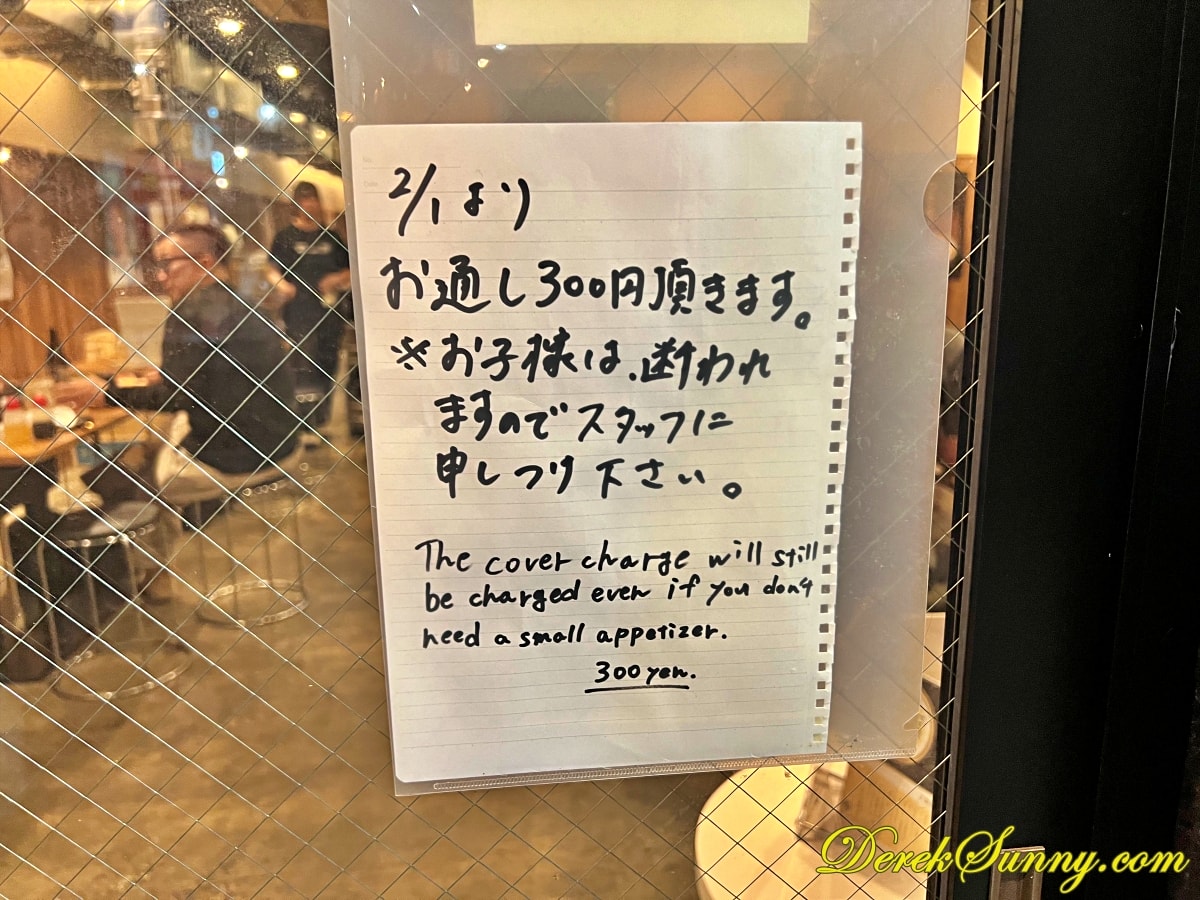 2/1より
お通し300円頂きます。
※お子様は、断われ
ますのでスタッフに
申しつけ下さい。
The cover charge will still
be charged even if you don't
need a small appetizer.
300 yen.
DerekSunny.com